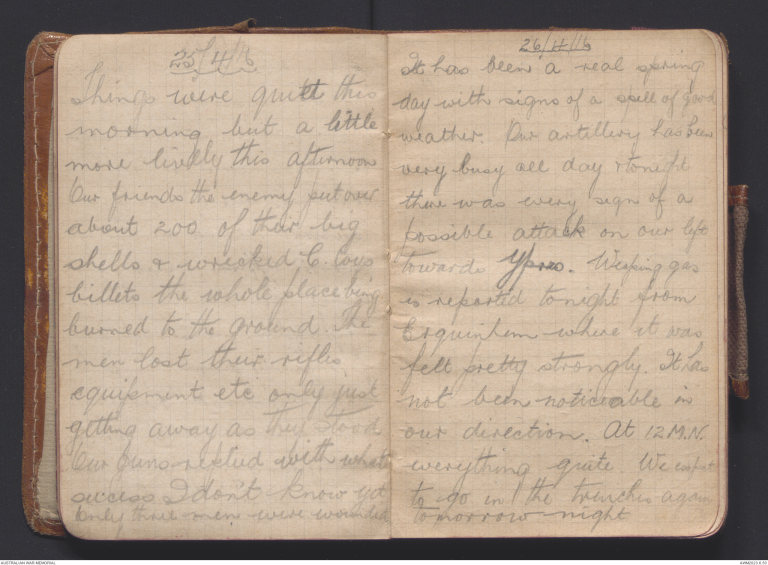 25/4/16
Things were quiet this
morning but a little
more lively this afternoon
Our friends the enemy put over
about 200 of their big
shells & wrecked C. Coys
billets the whole place being
burned to the ground. The
men lost their rifles
equipment etc only just
getting away as they stood
Our Guns replied with what
success I don't know yet
Only three men were wounded
26/4/16
It has been a real spring
day with signs of a spell of good
weather. Our artillery has been
very busy all day & tonight
there was every sign of a
possible attack on our left
towards Ypres. Weeping gas
is reported tonight from
Erquinhem where it was
felt pretty strongly. It has
not been noticeable in
our direction. At 12 M.N.
everything quite. We expect
to go in the trenches again
tomorrow night
AUSTRALIAN WAR MEMORIAL